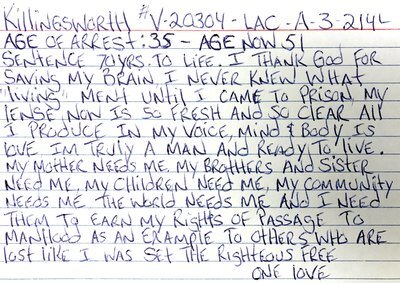 Killingsworth #V-20304-LAC-A-3-214L
AGE OF ARREST: 35 - AGE NOW 51
SENTENCE 70YRS TO LIFE. I THANK GOD FOR
SAVING MY BRAIN. I NEVER KNEW WHAT
"LIVING" MENT UNTIL I CAME TO PRISON, MY
LENSE NOW IS SO FRESH AND SO CLEAR ALL
I PRODUCE IN MY VOICE, MIND & BODY IS
LOVE IM TRULY A MAN AND READY TO LIVE.
MY MOTHER NEEDS ME, MY BROTHERS AND SISTER
NEED ME, MY CHILDREN NEED ME, MY COMMUNITY
NEEDS ME THE WORLD NEEDS ME AND I NEED
THEM TO EARN MY RIGHTS OF PASSAGE TO
MANHOOD AS AN EXAMPLE TO OTHERS WHO ARE
lost like I WAS SET THE RIGHTEOUS FREE
ONE LOVE